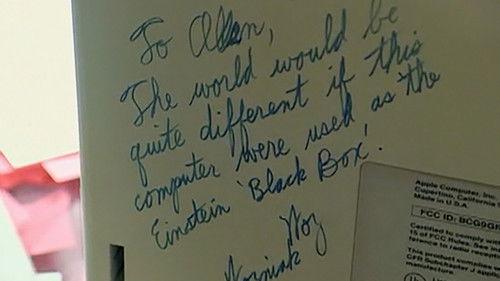 To Allan,
The world would be
quite different if this
computer were used as the
Einstein 'Black Box'.
Woz
Wozniak
Apple Computer, Inc.
Cupertino, California
Made in U.S.A
FCC ID: BCG9GR
Certified to comply with
15 of FCC Rules. See
ference to radio reception
This product complies
CFR Subchapter J
manufacture.